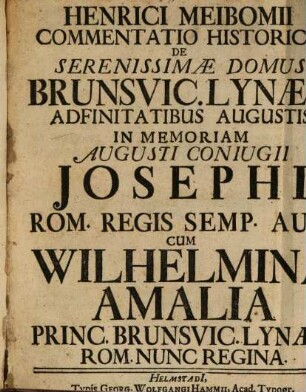 HENRICI MEIBOMII
COMMENTATIO HISTORIC
DE
SERENISSIMÆ DOMUS
BRUNSVIC.LYNÆ
ADFINITATIBUS AUGUSTIS
IN MEMORIAM
AUGUSTI CONIUGII
JOSEPHI
ROM. REGIS SEMP. AU
CUM
WILHELMINA
AMALIA
PRINC. BRUNSVIC.LYNÆ
ROM. NUNC REGINA.
HELMSTADI,
Typis GEORG-WOLFGANGI HAMMII, Acad. Typogr.